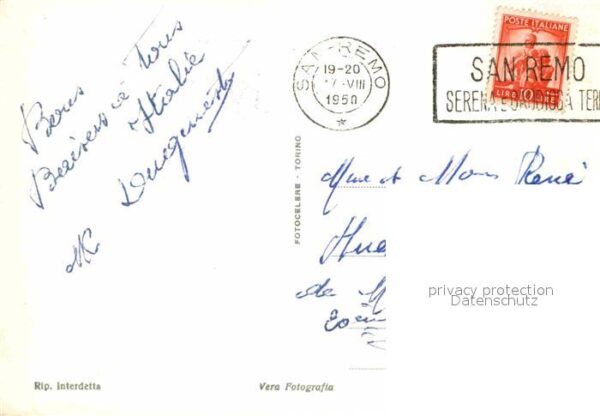 Bons
Baisers à tous
Italie
SAN-REMO
19-20
17-VIII
1950
POSTE ITALIANE
LIRE 10 LIRE
SAN REMO
SERENA E
TER
FOTOCELERE - TORINO
Mme et Mons René
Hue
de M
privacy protection
Datenschutz
Rip. interdetta
Vera Fotografia